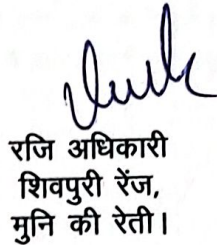 रजि अधिकारी
शिवपुरी रेंज,
मुनि की रेती।